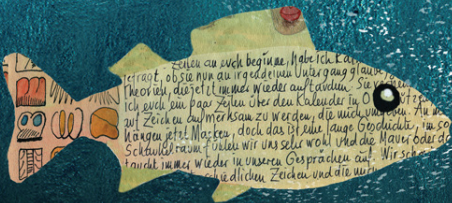 Zeilen an euch beginne, habe ich
gefragt, ob sie nun an irgendeinen Untergang
Theorien, die jetzt immer wieder auftauchen. Sie
ich euch ein paar Zeilen über den Kalender
auf Zeichen aufmerksam zu werden, die mich An
hängen jetzt Masken, doch das ist eine lange Geschichte, im
Schaukelraum fühlen wir uns sehr wohl und die Mauer oder
taucht immer wieder in unseren Gesprächen auf. Wir
schiedlichen Zeichen und die